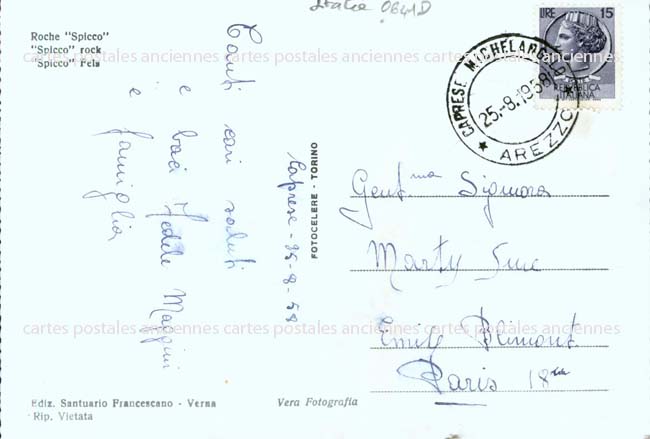 Italie 0641D
Roche "Spicco"
"Spicco" rock
"Spicco" Fels
Tanti cari saluti
e baci Fedele Maggini
e famiglia
Caprese - 25-8-58
FOTOCELERE - TORINO
LIRE 15
REPUBBLICA
ITALIANA
CAPRESE MICHELANGELO
25.-8.1958
★ AREZZO ★
Gent.ma Signora
Marty
Emile
Paris 18
cartes postales anciennes cartes postales anciennes cartes postales anciennes
cartes postales anciennes cartes postales anciennes cartes postales anciennes
Ediz. Santuario Francescano - Verna
Rip. Vietata
Vera Fotografia